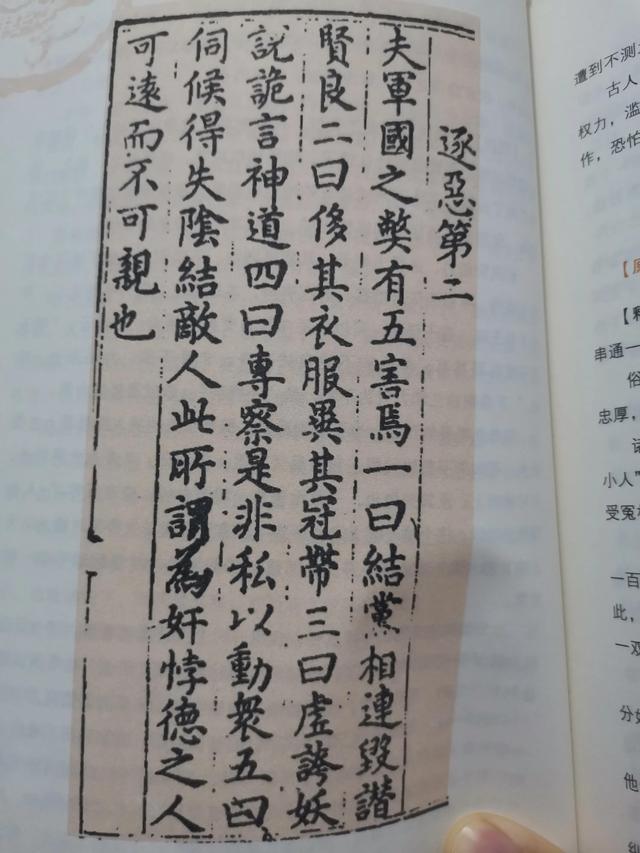 逐惡第二
夫軍國之獘有五害焉一曰結黨相連毀譖
賢良二曰侈其衣服異其冠帶三曰虛誇妖
說詭言神道四曰專察是非私以動衆五曰
伺候得失陰結敵人此所謂為奸悖德之人
可遠而不可親也
遭到不测
古人
权力，滥
作，恐怕
【
【释
串通一
俗
忠厚，
小人”
受冤
一百
此，
一双
分
他